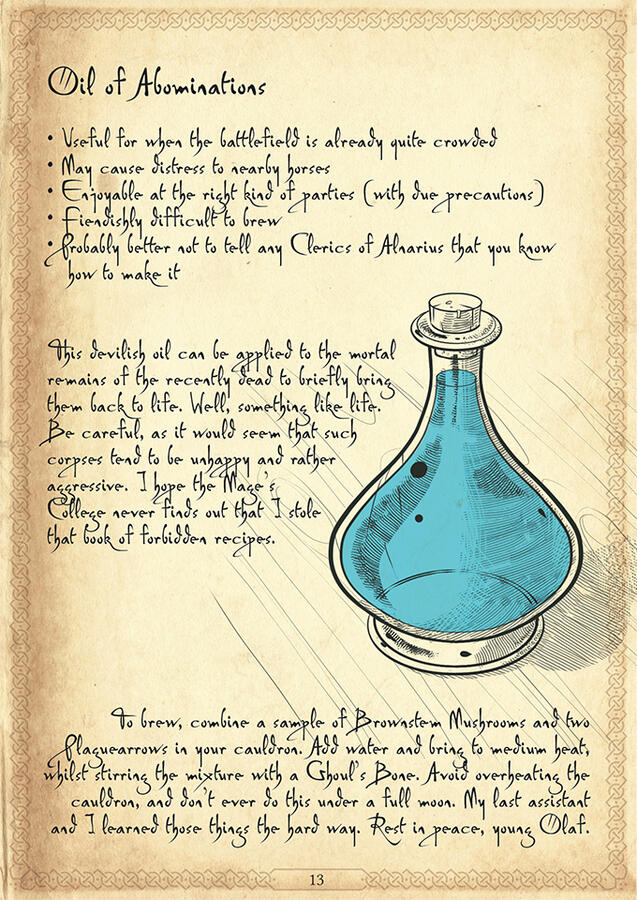 Oil of Abominations
• Useful for when the battlefield is already quite crowded
• May cause distress to nearby horses
• Enjoyable at the right kind of parties (with due precautions)
• Fiendishly difficult to brew
• Probably better not to tell any Clerics of Alnarius that you know
how to make it
This devilish oil can be applied to the mortal
remains of the recently dead to briefly bring
them back to life. Well, something like life.
Be careful, as it would seem that such
corpses tend to be unhappy and rather
aggressive. I hope the Mage's
College never finds out that I stole
that book of forbidden recipes.
To brew, combine a sample of Brownstem Mushrooms and two
Plaguearrows in your cauldron. Add water and bring to medium heat,
whilst stirring the mixture with a Ghoul's Bone. Avoid overheating the
cauldron, and don't ever do this under a full moon. My last assistant
and I learned those things the hard way. Rest in peace, young Olaf.
13